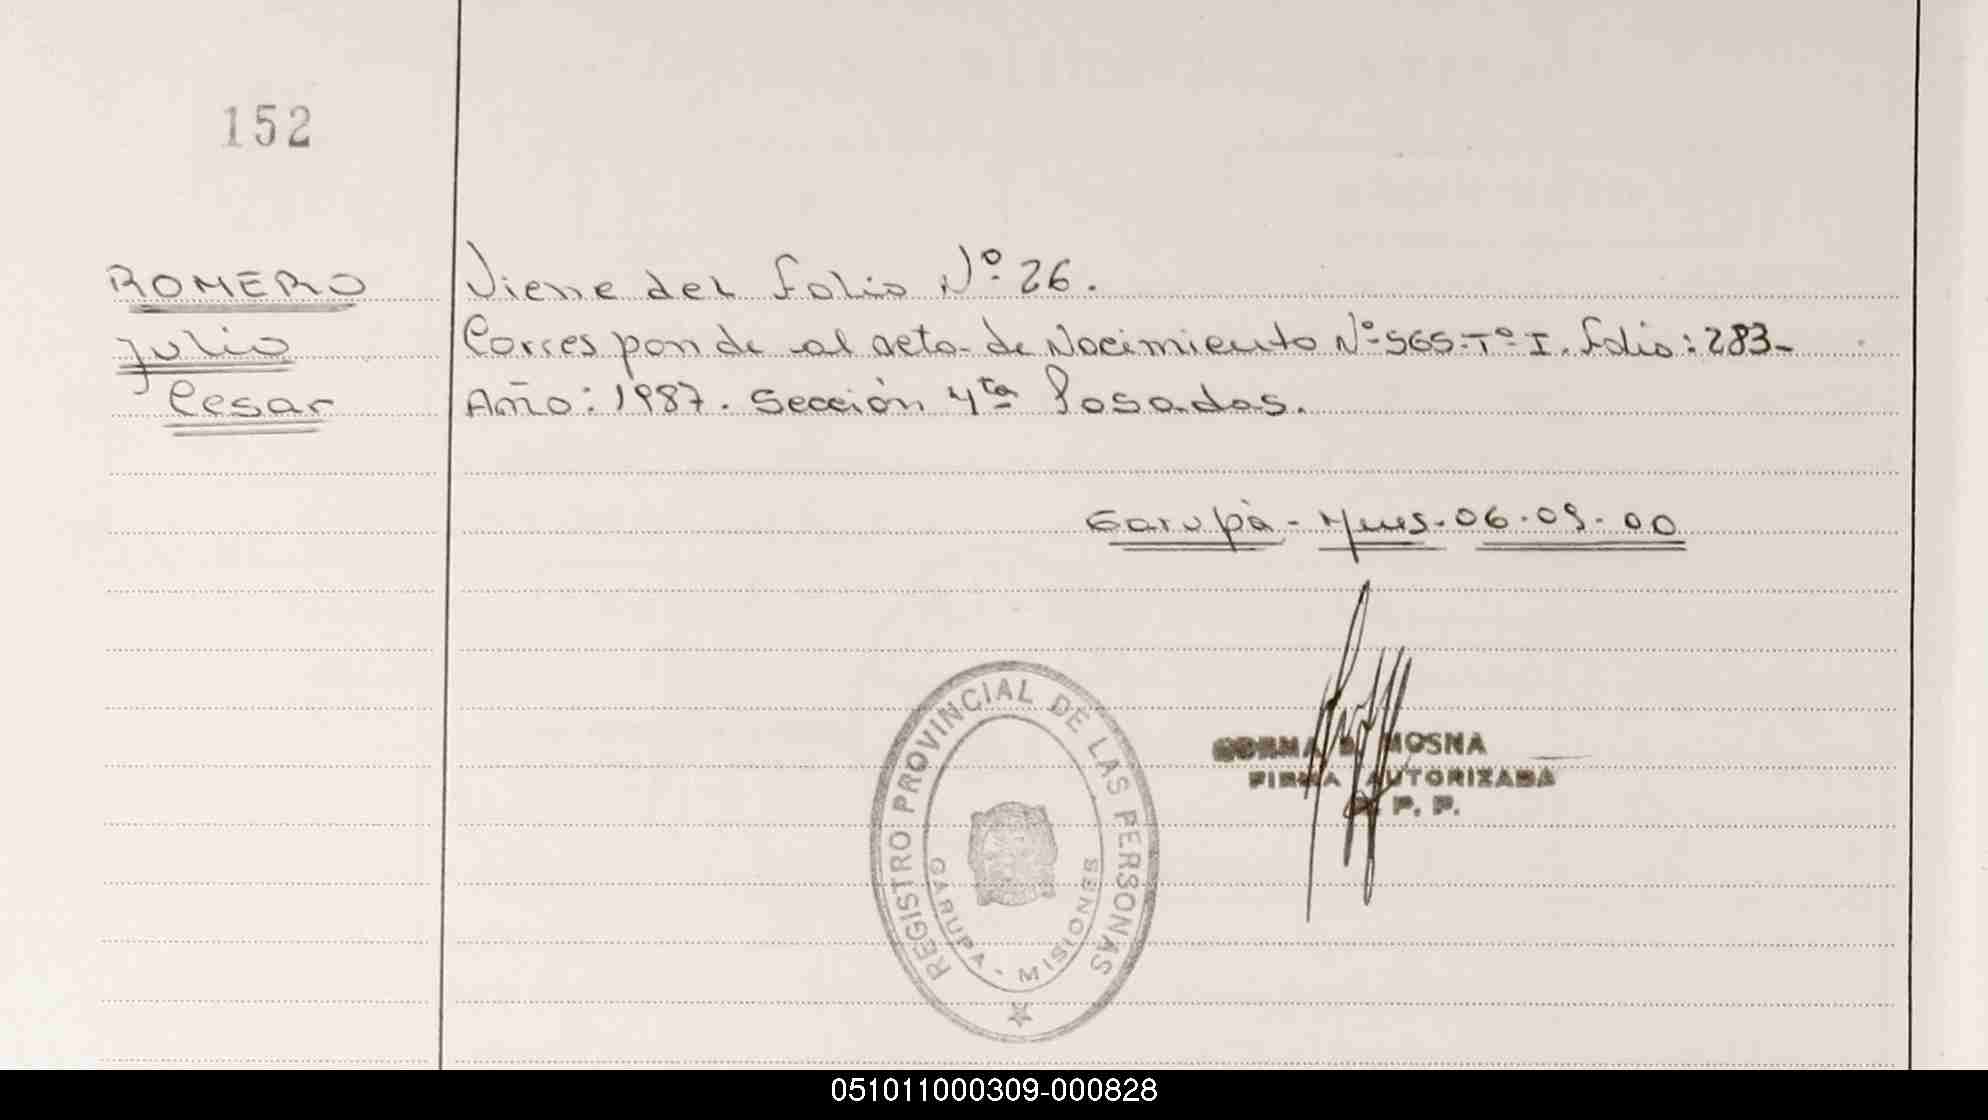 152
ROMERO
Julio
Cesar
Viene del folio Nº 26.
Corresponde al acta de Nacimiento Nº 565-Tº-I. folio: 283-
Año: 1987. Sección 4ta Posadas.
Garupà - Mnes. 06.09.00
REGISTRO PROVINCIAL DE LAS PERSONAS
GARUPA - MISIONES
MOSNA
FIRMA AUTORIZADA
P. P.
051011000309-000828